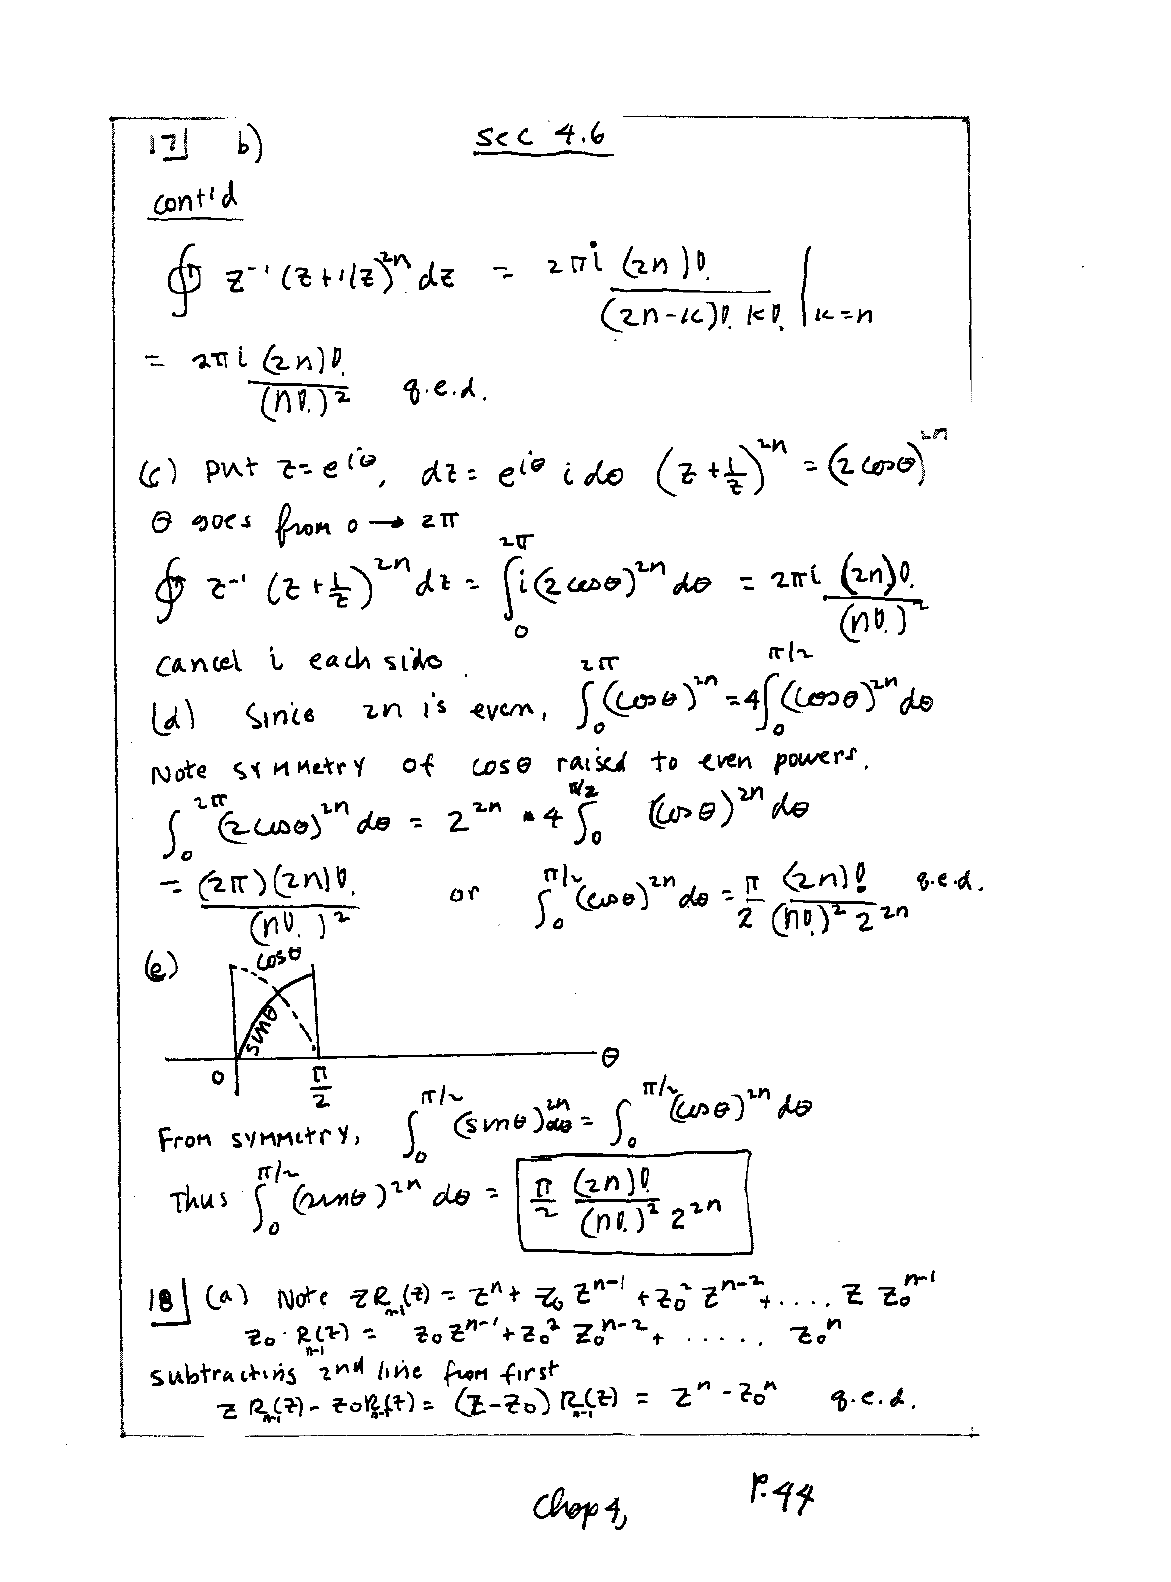 17] b) sec 4.6
cont'd
∮ z⁻¹ (z+1/z)²ⁿ dz = 2πi (2n)! / ((2n-k)! k!) |k=n
= 2πi (2n)! / (n!)² q.e.d.
(c) put z=e^{iθ}, dz = e^{iθ} i dθ (z+1/z)²ⁿ = (2 cosθ)²ⁿ
θ goes from 0 → 2π
∮ z⁻¹ (z+1/z)²ⁿ dz = ∫₀^{2π} i(2 cosθ)²ⁿ dθ = 2πi (2n)! / (n!)²
cancel i each side.
(d) Since 2n is even, ∫₀^{2π} (cosθ)²ⁿ = 4∫₀^{π/2} (cosθ)²ⁿ dθ
Note symmetry of cosθ raised to even powers.
∫₀^{2π} (2cosθ)²ⁿ dθ = 2²ⁿ • 4 ∫₀^{π/2} (cosθ)²ⁿ dθ
= (2π)(2n)! / (n!)² or ∫₀^{π/2} (cosθ)²ⁿ dθ = π/2 (2n)! / ((n!)² 2²ⁿ) q.e.d.
(e) cosθ
sinθ
0 π/2 θ
From symmetry, ∫₀^{π/2} (sinθ)²ⁿ dθ = ∫₀^{π/2} (cosθ)²ⁿ dθ
Thus ∫₀^{π/2} (sinθ)²ⁿ dθ = π/2 (2n)! / ((n!)² 2²ⁿ)
18] (a) Note zR_{n-1}(z) = zⁿ + z₀ zⁿ⁻¹ + z₀² zⁿ⁻² + .... z z₀ⁿ⁻¹
z₀ · R_{n-1}(z) = z₀zⁿ⁻¹ + z₀² z₀ⁿ⁻² + ...... z₀ⁿ
subtracting 2nd line from first
z R_{n-1}(z) - z₀R_{n-1}(z) = (z-z₀) R_{n-1}(z) = zⁿ - z₀ⁿ q.e.d.
Chap 4, P.44